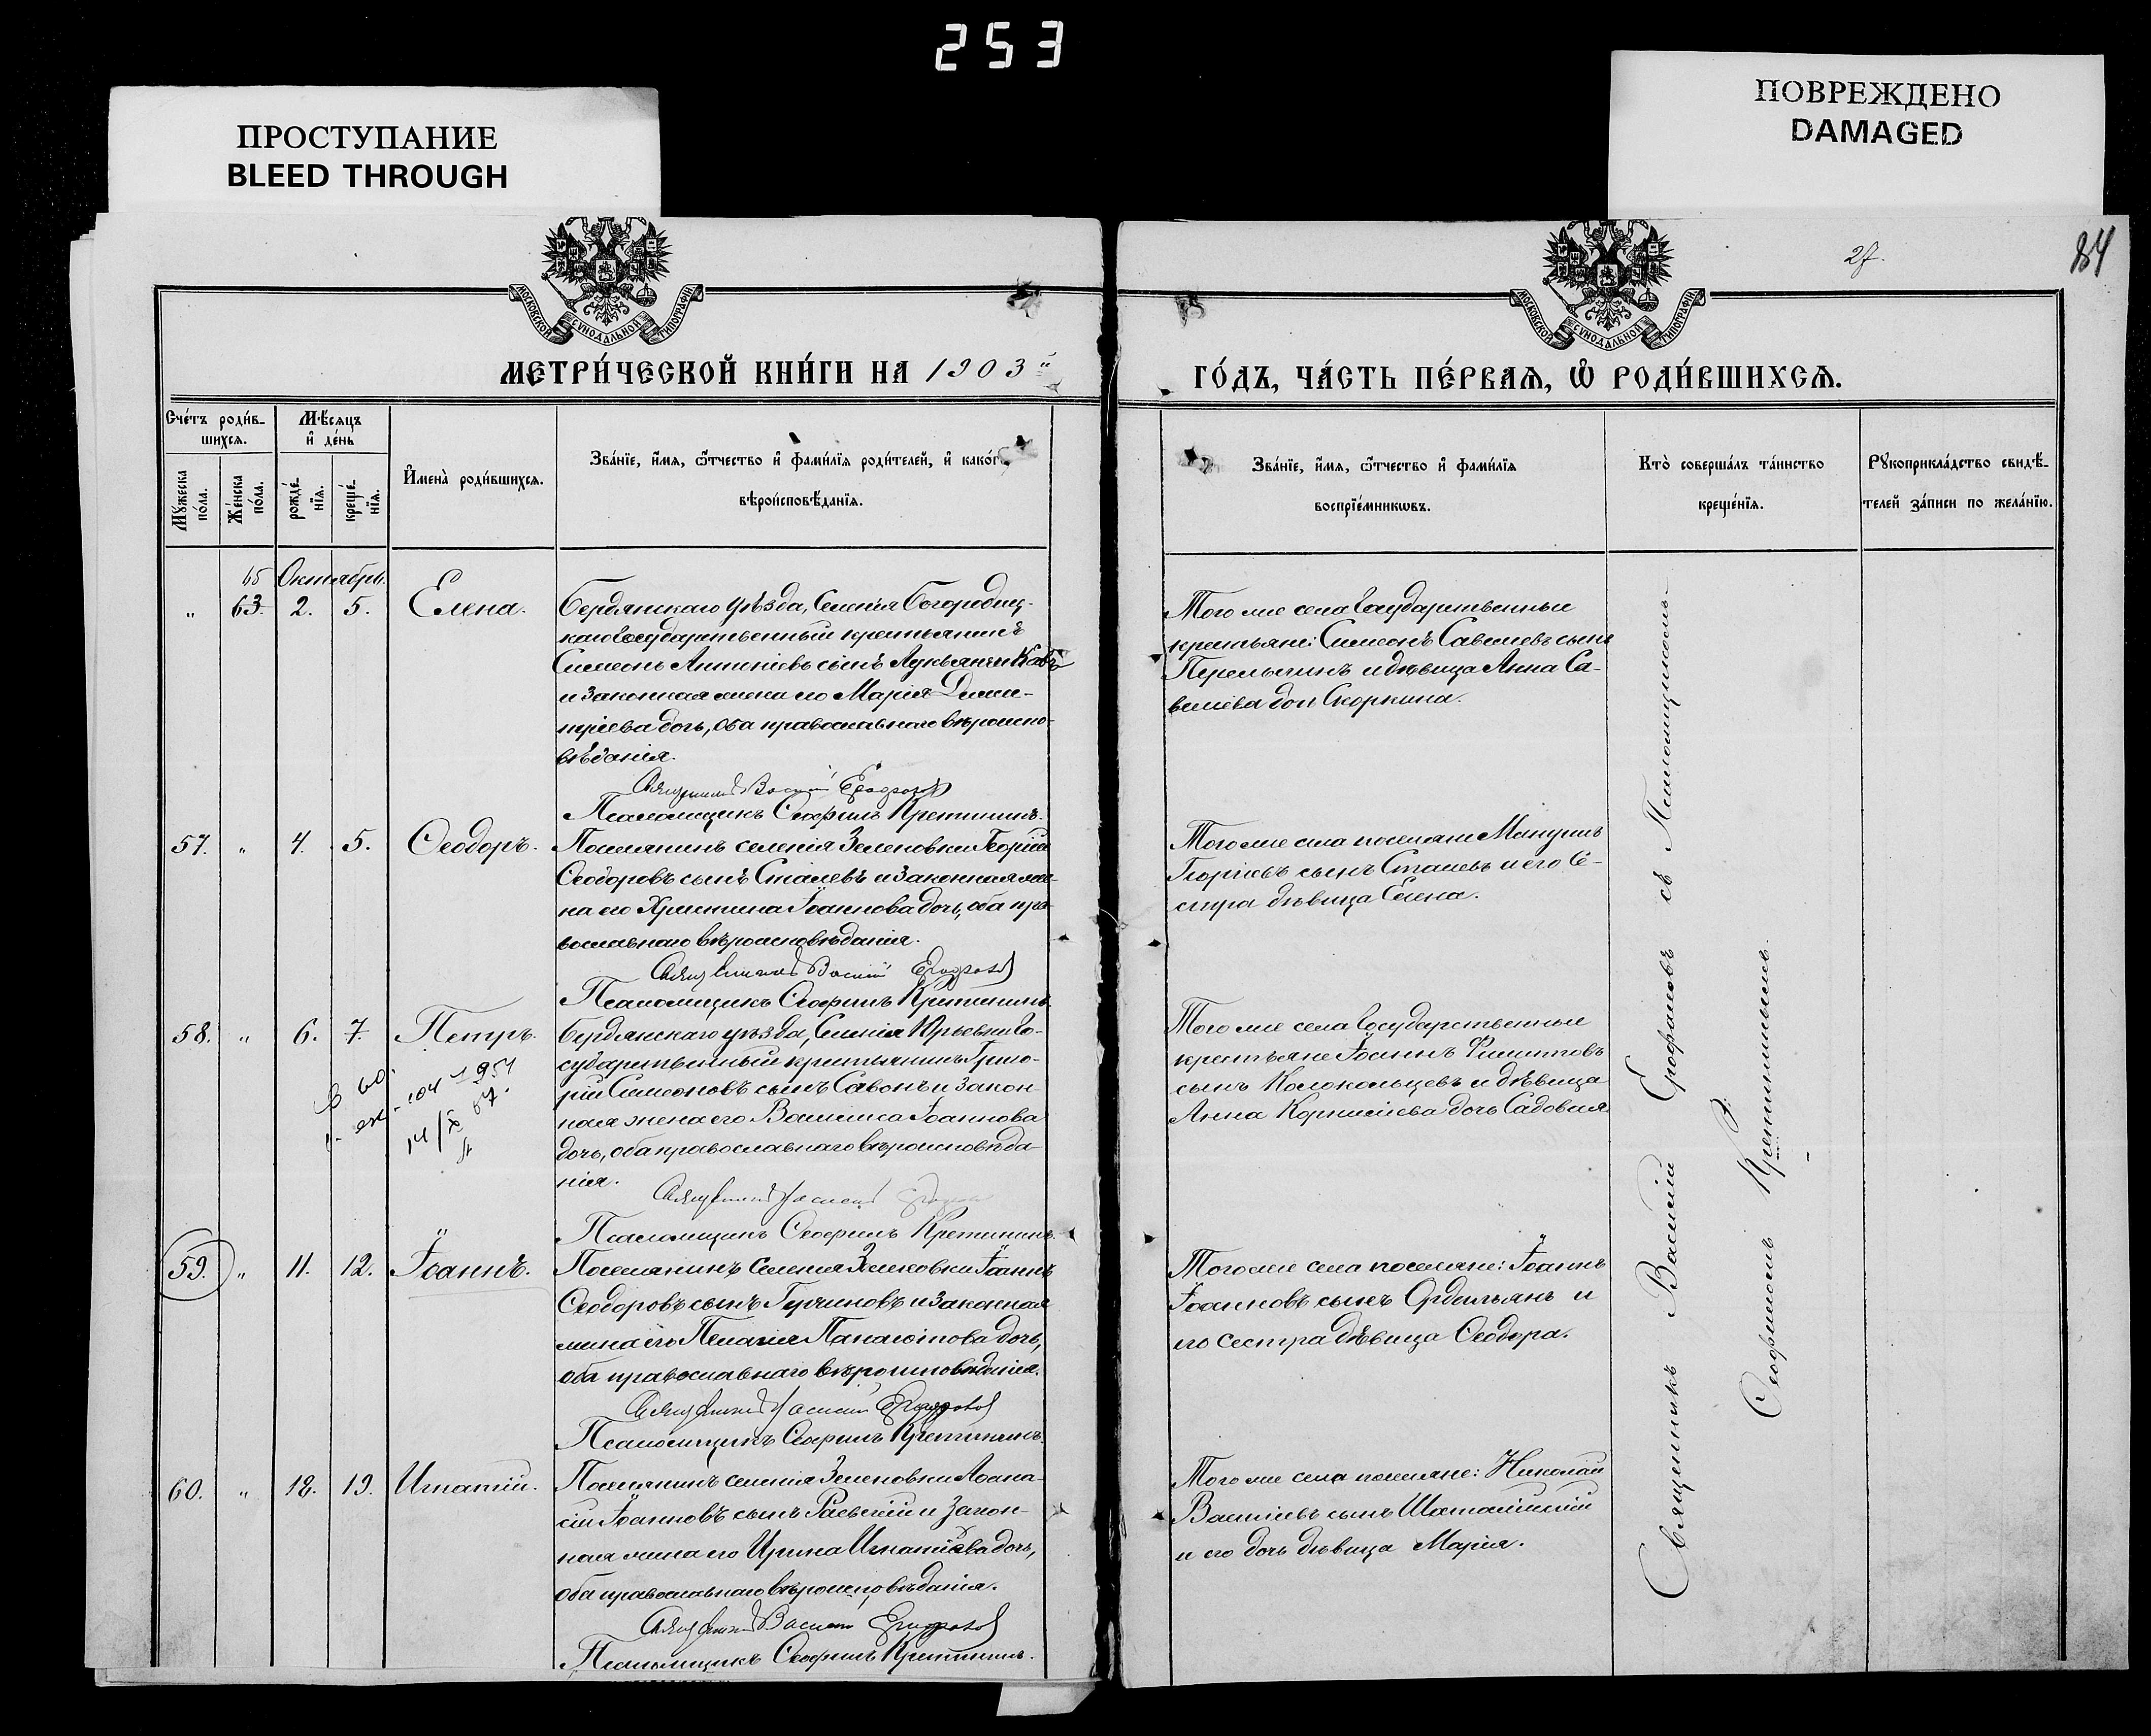 253
ПРОСТУПАНИЕ
BLEED THROUGH
ПОВРЕЖДЕНО
DAMAGED
МОСКОВСКОЙ СѴНОДАЛЬНОЙ ТИПОГРАФІИ
МОСКОВСКОЙ СѴНОДАЛЬНОЙ ТИПОГРАФІИ
27.
84
МЕТРИ́ЧЕСКОЙ КНИ́ГИ НА 1903й
ГО́ДЪ, ЧА́СТЬ ПЕ́РВАѦ, Ѡ҆ РОДИ́ВШИХСѦ.
Сче́тъ роди́в-
шихсѧ.
Мѣ́сяцъ
и҆ де́нь
Мꙋ́жеска
по́ла.
Же́нска
по́ла.
рожде́-
нїѧ.
креще́-
нїѧ.
И҆мена̀ роди́вшихсѧ.
Зва́нїе, и҆́мѧ, ѻ҆́тчество и҆ фами́лїѧ роди́телей, и҆ како́г
вѣроисповѣ́данїѧ.
Зва́нїе, и҆́мѧ, ѻ҆́тчество и҆ фами́лїѧ
воспрїе́мникѡвъ.
Кто̀ соверша́лъ та́инство
креще́нїѧ.
Рꙋкоприкла́дство свидѣ́-
телей за́писи по жела́нїю.
65 Октябрь.
" 63. 2. 5. Елена.
Бердянскаго уѣзда, Селенія Богородиц-
каго Государственный крестьянинъ
Симеонъ Антоніевъ сынъ
и законная жена его Марія Дими-
тріева дочь, оба православнаго вѣроиспо-
вѣданія.
Священникъ Василій Ерофаловъ
Псаломщикъ Ѳеофилъ Кретининъ.
Того же села Государственные
крестьяне: Симеонъ Савельевъ сынъ
Перелыгинъ и дѣвица Анна Са-
веліева дочь Скоркина.
57. " 4. 5. Ѳеодоръ.
Поселянинъ селенія Зеленовки Георгій
Ѳеодоровъ сынъ Сталевъ и законная же-
на его Христина Іоаннова дочь, оба пра-
вославнаго вѣроисповѣданія.
Священникъ Василій
Псаломщикъ Ѳеофилъ Кретининъ.
Того же села поселяне Мануилъ
Георгіевъ сынъ Сталевъ и его се-
стра дѣвица Елена.
58. " 6. 7. Петръ.
Бердянскаго уѣзда, Селенія Юрьевки Го-
сударственный крестьянинъ Григо-
рій Симеоновъ сынъ Савонъ и закон-
ная жена его Василиса Іоаннова
дочь, оба православнаго вѣроисповѣда-
нія.
Священникъ Василій
Псаломщикъ Ѳеофилъ Кретининъ.
Того же села Государственные
крестьяне Іоаннъ Филипповъ
сынъ Колокольцевъ и дѣвица
Анна Корниліева дочь Садовая.
59. " 11. 12. Іоаннъ.
Поселянинъ Селенія Зеленовки Іоаннъ
Ѳеодоровъ сынъ Гуржиновъ и законная
жена его Пелагія Панаіотова дочь,
оба православнаго вѣроисповѣданія.
Священникъ Василій
Псаломщикъ Ѳеофилъ Кретининъ.
Того же села поселяне: Іоаннъ
Іоанновъ сынъ Ордельянъ и
его сестра дѣвица Ѳеодора.
60. " 12. 19. Игнатій.
Поселянинъ селенія Зеленовки Аѳана-
сій Іоанновъ сынъ и закон-
ная жена его Ирина Игнатіева дочь,
оба православнаго вѣроисповѣданія.
Священникъ Василій
Псаломщикъ Ѳеофилъ Кретининъ.
Того же села поселяне: Николай
Василіевъ сынъ
и его дочь дѣвица Марія.
Священникъ Василій съ Псаломщикомъ
Ѳеофиломъ Кретининымъ.